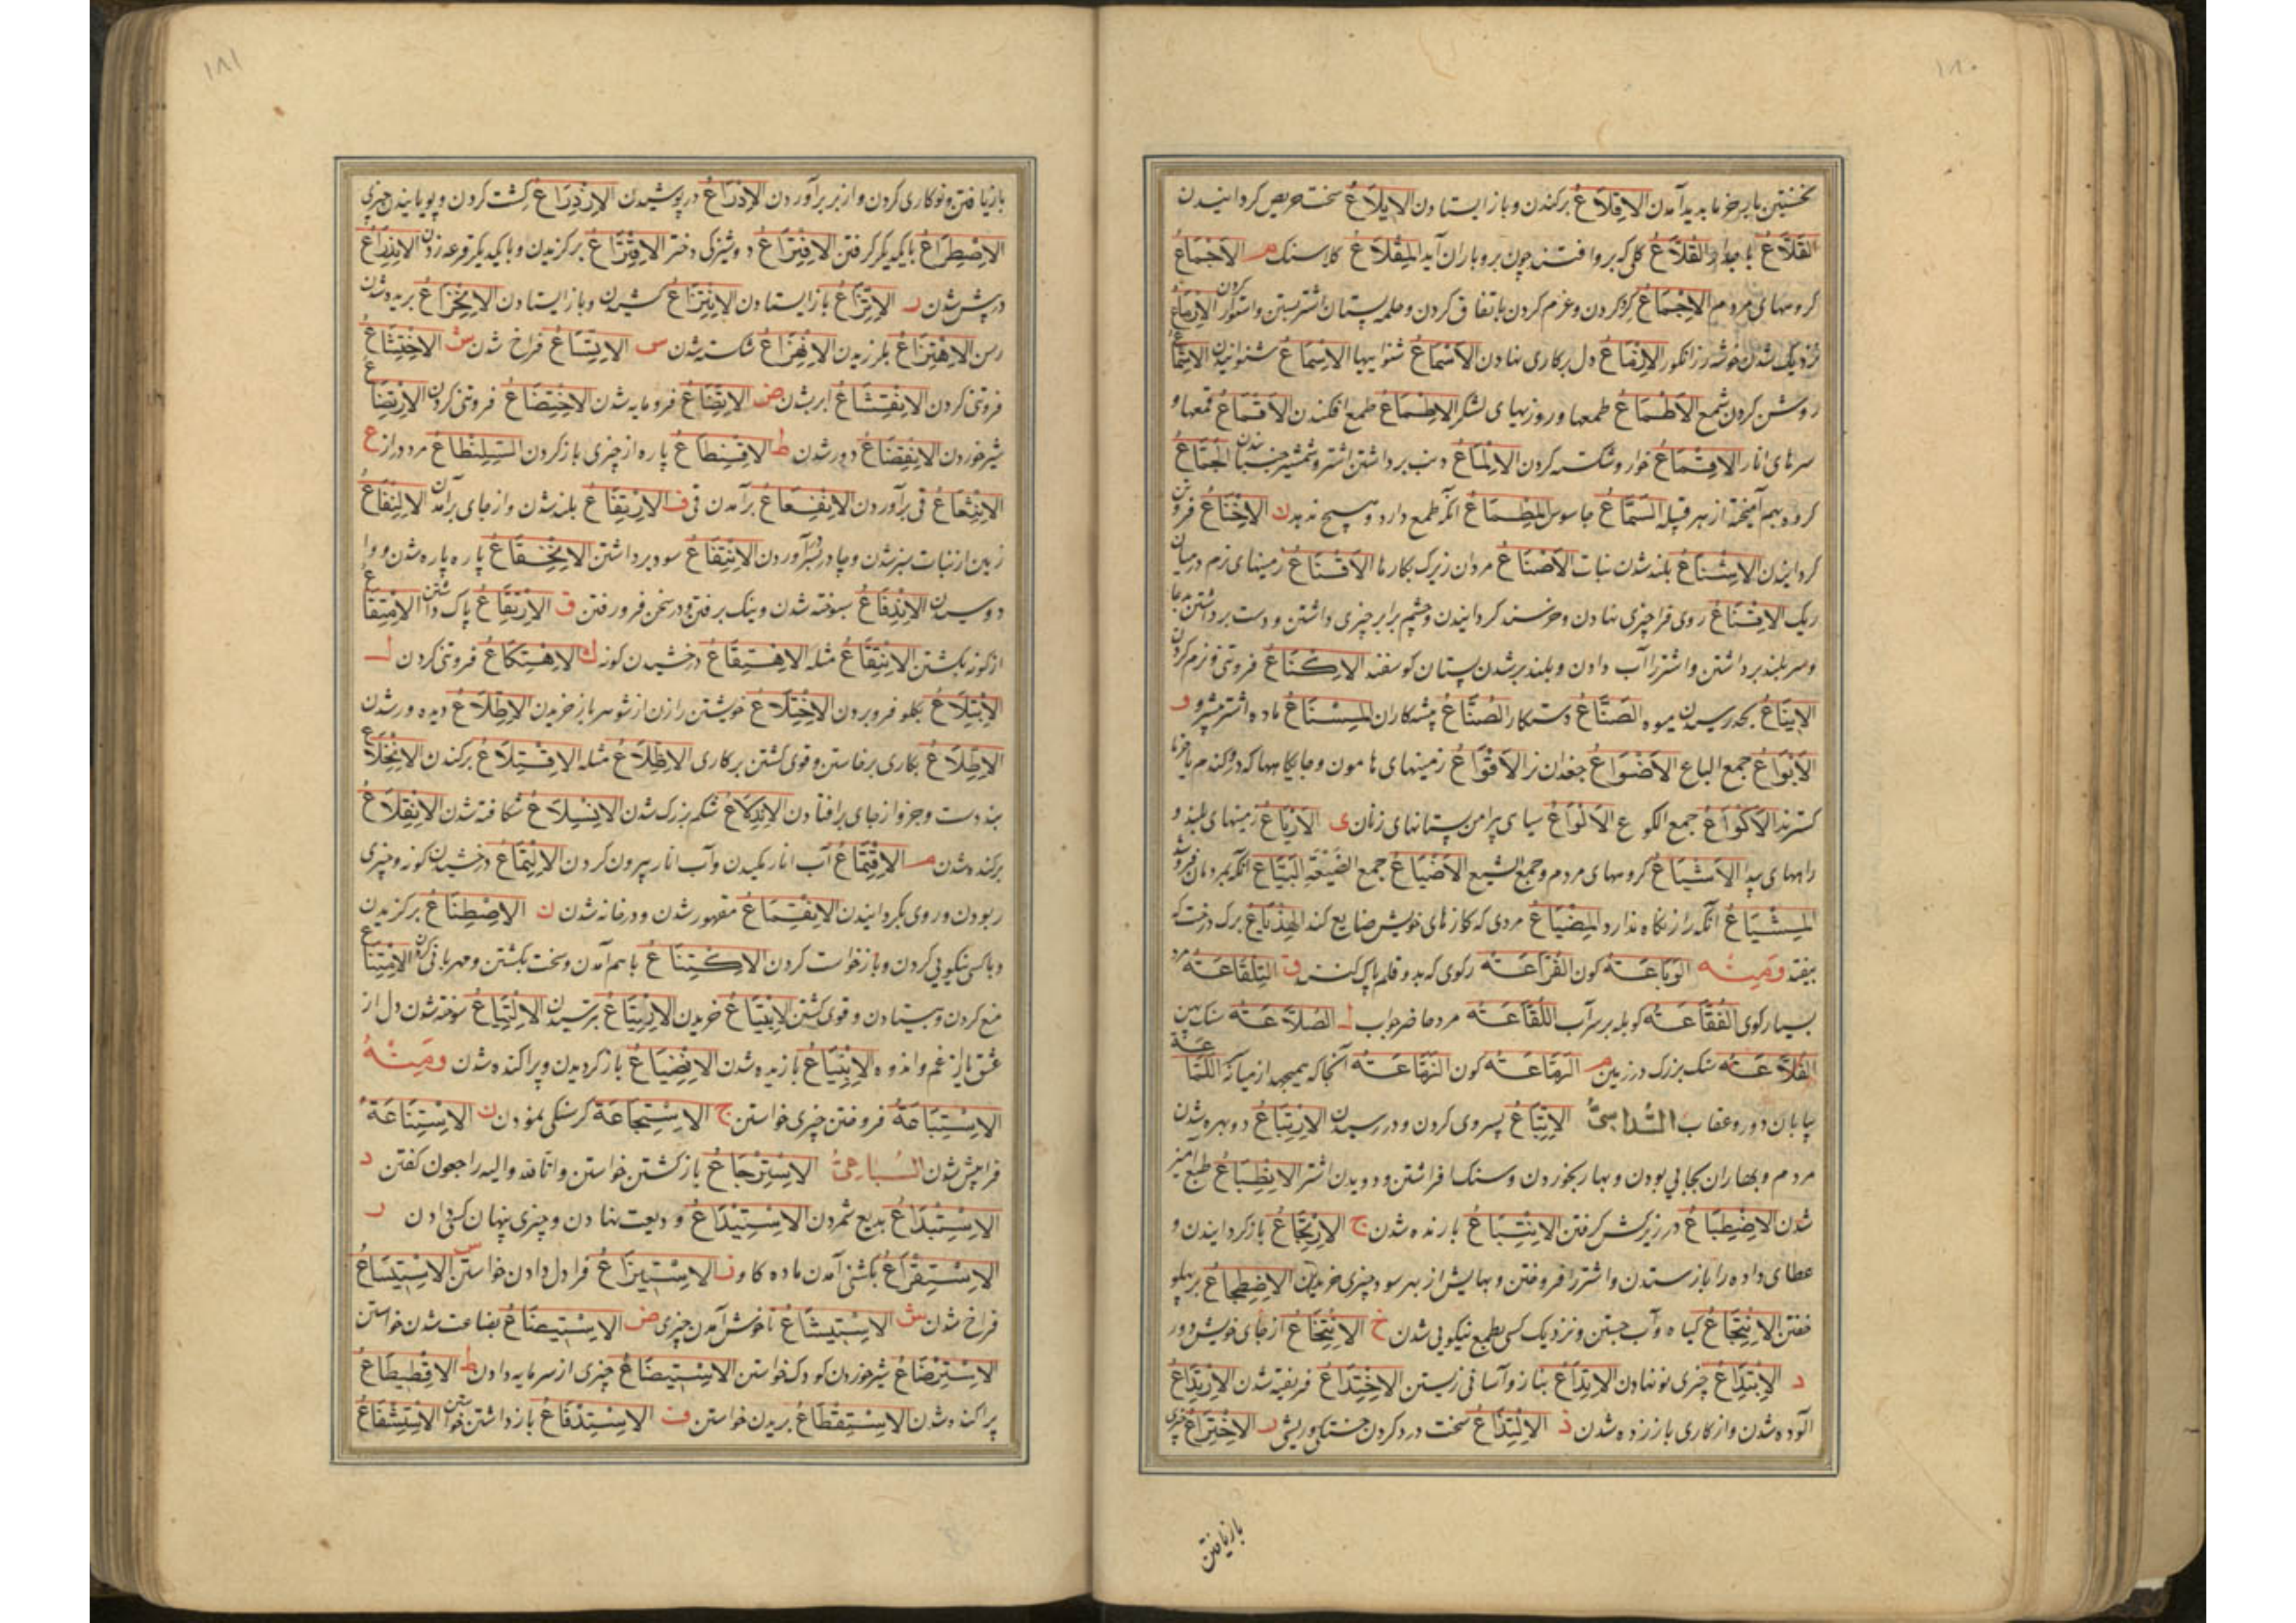 ١٨٠
نخستین بار خرما پدید آمدن الاِقلاَعُ برکندن و باز ایستادن الاِیلاَعُ سخت حریص کردانیدن
القُلاَّعُ کلی که بروا فتند چون برو باران آید المِقْلاَعُ کلاسنک م الاَجْمَاعُ
کروههای مردم الاِجْمَاعُ کرد کردن و عزم کردن باتفاق کردن و جمله پستان اشتر بستن و استوار کردن
نزدیک شدن خوشه رز انکور الاِزْمَاعُ دل بر کاری نهادن الاَسْمَاعُ شنواییها الاِسْمَاعُ شنوانیدن الاِشْمَاعُ
روشن کردن شمع الاَطْمَاعُ طمعها و روزیهای لشکر الاِطْمَاعُ طمع افکندن الاَقْمَاعُ قمعها و
سرهای انار الاِقْمَاعُ خوار و شکسته کردن الاِلْمَاعُ دنب برداشتن اشتر و شمشیر جنبانیدن الجُمَّاعُ
کروه بهم آمیخته از هر قبیله السَّمَّاعُ جاسوس المِطْمَاعُ آنکه طمع دارد و هیچ ندهد ن الاِخْنَاعُ فروتن
کردانیدن الاِسْنَاعُ بلند شدن نبات الاَصْنَاعُ مردان زیرک بکارها الاَقْنَاعُ زمینهای نرم در میان
ریک الاِقْنَاعُ روی فرا چیزی نهادن و خرسند کردانیدن و چشم برابر چیزی داشتن و دست برداشتن بدعا
و سر بلند برداشتن و اشتر را آب دادن و بلند بر شدن پستان کوسفند الاِکْنَاعُ فروتنی و نرم کردن
الاِینَاعُ بحد رسیدن میوه الصَّنَّاعُ دستکار الصُنَّاعُ پیشه کاران المِسْنَاعُ ماده اشتر پیشرو و
الاَبْوَاعُ جمع الباع الاَضْوَاعُ جغدان نر الاَقْوَاعُ زمینهای هامون و جایکاهها که درو کندم یا خرما
کسترند الاَکْوَاعُ جمع الکوع الاَلْوَاعُ سیاهی پیرامن پستانهای زنان ی الاَرْیَاعُ زمینهای بلند و
راههای پیدا الاَشْیَاعُ کروههای مردم و جمع الشیع الاَضْیَاعُ جمع الضَیْعَةِ البَیَّاعُ
المِشْیَاعُ آنکه راز نکاه ندارد المِضْیَاعُ مردی که کارهای خویش ضایع کند برک درخت که
بیفتد وَمِنْه الوَبَّاعَة کون القُرَّاعَة رکوی که بدو قلم پاک کنند ق التِلِقَّاعَة مرد
بسیار کوی الفُقَّاعَة کوپله بر سر آب اللُقَّاعَة مرد حاضر جواب ل الصُلاَّعَة سنک پهن
القُلاَّعَة سنک بزرک در زمین م الرَمَّاعَة کون الرَمَّاعَة آنجا که میجهد از میانه اللَمَّاعَة
بیابان دور و عقاب السُّداسِیُّ الاِتِّبَاعُ پس روی کردن و در رسیدن الاِرْتِبَاعُ دو بهره شدن
مردم و بهاران بجایی بودن و بهار بخوردن و سنک افراشتن و دویدن اشتر الاِنْطِبَاعُ طبع آمیز
شدن الاِضْطِبَاعُ در زیر کش کرفتن الاِنْتِبَاعُ بازنده شدن ج الاِرْتِجَاعُ باز کردانیدن و
عطای داده را باز ستدن و اشتر را فروختن و بهایش از بهر سود چیزی خریدن الاِضْطِجَاعُ بر پهلو
خفتن الاِنْتِجَاعُ کیاه و آب جستن و نزدیک کسی بطمع نیکویی شدن خ الاِنْتِخَاعُ از جای خویش دور
د الاِبْتِدَاعُ چیزی نو نهادن الاِتِّدَاعُ بناز و آسانی زیستن الاِخْتِدَاعُ فریفته شدن الاِرْتِدَاعُ
آلوده شدن و از کاری باز زده شدن ذ الاِلْتِذَاعُ سخت درد کردن خستکی و ریشی ر الاِخْتِرَاعُ چیزی
باز یافتن
١٨١
باز یافتن و نو کاری کردن و از بر بر آوردن الاِدِّرَاعُ در پوشیدن الاِزْدِرَاعُ کشت کردن و پویانیدن چیزی
الاِصْطِرَاعُ با یکدیکر کرفتن الاِفْتِرَاعُ دوشیزکی دختر الاِقْتِرَاعُ برکزیدن و با یکدیکر قرعه زدن الاِنْذِرَاعُ
در پیش شدن ز الاِتِّزَاعُ باز ایستادن الاِنْتِزَاعُ کشیدن و باز ایستادن الاِنْخِزَاعُ بریده شدن
رسن الاِهْتِزَاعُ بلرزیدن الاِنْهِزَاعُ شکسته شدن س الاِتِّسَاعُ فراخ شدن ش الاِخْتِشَاعُ
فروتنی کردن الاِنْقِشَاعُ ابر شدن ض الاِتِّضَاعُ فرومایه شدن الاِخْتِضَاعُ فروتنی کردن الاِرْتِضَاعُ
شیر خوردن الاِنْفِضَاعُ دور شدن ط الاِقْتِطَاعُ پاره از چیزی باز کردن السِّلِنْطَاعُ مرد دراز ع
الاِنْثِعَاعُ قی بر آوردن برآمدن قی ف الاِرْتِفَاعُ بلند شدن و از جای برآمدن الاِلْتِفَاعُ
زمین از نبات سبز شدن و چادر بسر آوردن الاِنْتِفَاعُ سود برداشتن الاِنْخِفَاعُ پاره پاره شدن و وا
دوسیدن الاِنْدِفَاعُ سوخته شدن و نیک برفتن و در سخن فرو رفتن ق الاِرْتِقَاعُ پاک داشتن الاِمْتِقَاعُ
از کونه بکشتن الاِنْتِقَاعُ مثله الاِهْتِقَاعُ درخشیدن کونه ك الاِهْتِکَاعُ فروتنی کردن ل
الاِبْتِلاَعُ بکلو فرو بردن الاِخْتِلاَعُ خویشتن را زن از شوهر باز خریدن الاِطِّلاَعُ دیده ور شدن
الاِطِّلاَعُ بکاری برخاستن و قوی کشتن بر کاری الاِظِّلاَعُ مثله الاِقْتِلاَعُ برکندن الاِنْخِلاَعُ
بند دست و جز و از جای بر افتادن الاِنْدِلاَعُ شکم بزرک شدن الاِنْسِلاَعُ شکافته شدن الاِنْقِلاَعُ
برکنده شدن م الاِقْتِمَاعُ آب انار مکیدن و آب انار بیرون کردن الاِلْتِمَاعُ درخشیدن کونه و چیزی
ربودن و روی بکردانیدن الاِنْقِمَاعُ مقهور شدن و در خانه شدن ن الاِصْطِنَاعُ برکزیدن
و با کسی نیکویی کردن و باز خواست کردن الاِکْتِنَاعُ باهم آمدن و سخت بکشتن و مهربانی کردن الاِمْتِنَاعُ
منع کردن و بیستادن و قوی کشتن الاِبْتِیَاعُ خریدن الاِرْتِیَاعُ بترسیدن الاِلْتِیَاعُ سوخته شدن دل از
عشق یا از غم و اندوه الاِنْبِیَاعُ بازیده شدن باز کردیدن و پراکنده شدن وَمِنْهُ
الاِسْتِبَاعَةُ فروختن چیزی خواستن ج الاِسْتِجَاعَةُ کرسنکی نمودن ن الاِسْتِنَاعَةُ
فرا پیش شدن السُّبَاعِیُّ الاِسْتِرْجَاعُ باز کشتن خواستن و انا لله و انا الیه راجعون کفتن د
الاِسْتِبْدَاعُ بدیع شمردن الاِسْتِیدَاعُ ودیعت نهادن و چیزی پنهان کسی دادن ر
الاِسْتِقْرَاعُ بکشنی آمدن ماده کاو ز الاِسْتِیزَاعُ فرا دل دادن خواستن س الاِسْتِیسَاعُ
فراخ شدن ش الاِسْتِبْشَاعُ ناخوش آمدن چیزی ض الاِسْتِبْضَاعُ بضاعت شدن خواستن
الاِسْتِرْضَاعُ شیر خوردن کودک خواستن الاِسْتِیضَاعُ چیزی از سرمایه دادن ط الاِقْطِیطَاعُ
پراکنده شدن الاِسْتِقْطَاعُ بریدن خواستن ف الاِسْتِدْفَاعُ باز داشتن خواستن الاِسْتِشْفَاعُ